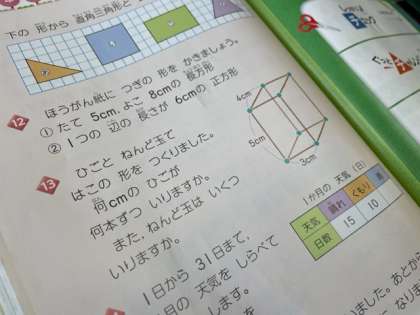 下の 形から 直角三角形と
ほうがん紙に つぎの 形を かきましょう。
12
① たて 5cm、よこ 8cmの 長方形
② 1つの 辺の 長さが 6cmの 正方形
13
ひごと ねんど玉で
はこの 形を つくりました。
何cmの ひごが
何本ずつ いりますか。
また、ねんど玉は いくつ
いりますか。
4cm
5cm
3cm
1か月の 天気(日)
天気 晴れ くもり
日数 15 10
1日から 31日まで、
月の 天気を しらべて
します。
ました。あとから